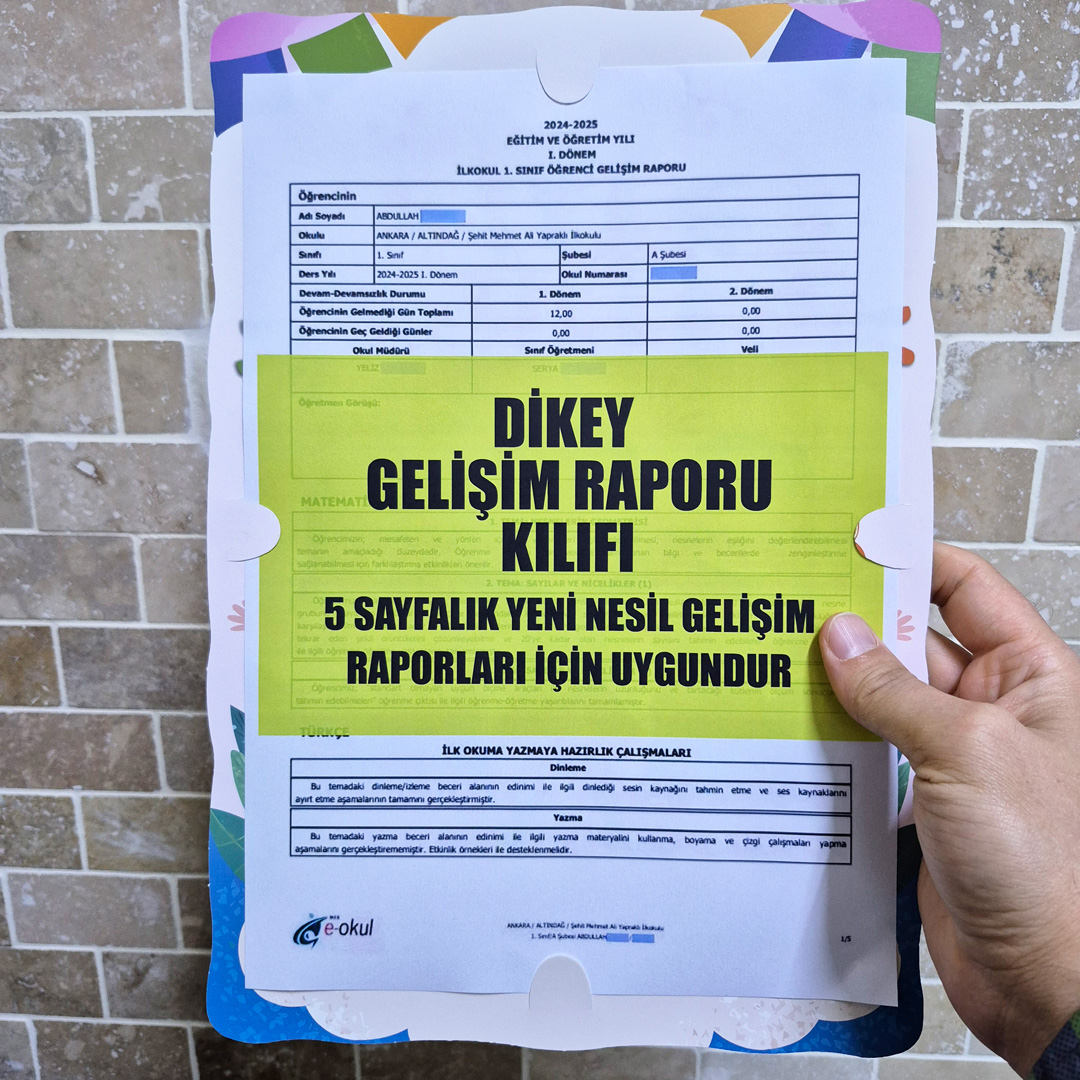 2024-2025
EĞİTİM VE ÖĞRETİM YILI
I. DÖNEM
İLKOKUL 1. SINIF ÖĞRENCİ GELİŞİM RAPORU
Öğrencinin
Adı Soyadı ABDULLAH
Okulu ANKARA / ALTINDAĞ / Şehit Mehmet Ali Yapraklı İlkokulu
Sınıfı 1. Sınıf Şubesi A Şubesi
Ders Yılı 2024-2025 I. Dönem Okul Numarası
Devam-Devamsızlık Durumu 1. Dönem 2. Dönem
Öğrencinin Gelmediği Gün Toplamı 12,00 0,00
Öğrencinin Geç Geldiği Günler 0,00 0,00
Okul Müdürü Sınıf Öğretmeni Veli
YELİZ SERYA
Öğretmen Görüşü:
DİKEY
GELİŞİM RAPORU
KILIFI
5 SAYFALIK YENİ NESİL GELİŞİM
RAPORLARI İÇİN UYGUNDUR
MATEMATİ
Öğrencimizin; mesafeleri ve yönleri nesnelerin eşliğini değerlendirebilmesi
temanın amaçladığı düzeydedir. bilgi ve becerilerde zenginleştirme
sağlanabilmesi için farklılaştırma etkinlikleri
2. TEMA: SAYILAR VE NİCELİKLER (1)
tahmin edebilmeleri" öğrenme çıktısı ile ilgili öğrenme-öğretme yaşantılarını tamamlamıştır.
TÜRKÇE
İLK OKUMA YAZMAYA HAZIRLIK ÇALIŞMALARI
Dinleme
Bu temadaki dinleme/izleme beceri alanının edinimi ile ilgili dinlediği sesin kaynağını tahmin etme ve ses kaynaklarını
ayırt etme aşamalarının tamamını gerçekleştirmiştir.
Yazma
Bu temadaki yazma beceri alanının edinimi ile ilgili yazma materyalini kullanma, boyama ve çizgi çalışmaları yapma
aşamalarını gerçekleştirememiştir. Etkinlik örnekleri ile desteklenmelidir.
MEB
e-okul
ANKARA / ALTINDAĞ / Şehit Mehmet Ali Yapraklı İlkokulu
1. Sınıf/A Şubesi ABDULLAH /
1/5